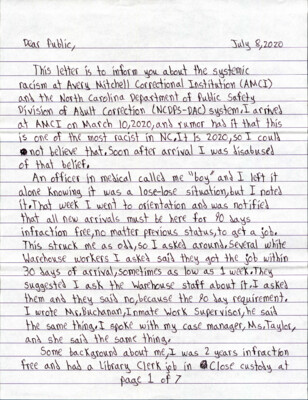 Dear Public, July 8, 2020
This letter is to inform you about the systemic
racism at Avery Mitchell Correctional Institution (AMCI)
and the North Carolina Department of Public Safety
Division of Adult Correction (NCDPS-DAC) system. I arrived
at AMCI on March 10, 2020, and rumor had it that this
is one of the most racist in NC. It IS 2020, so I could
not believe that. Soon after arrival I was disabused
of that belief.
An officer in medical called me "boy" and I left it
alone knowing it was a lose-lose situation, but I noted
it. That week I went to orientation and was notified
that all new arrivals must be here for 90 days
infraction free, no matter previous status, to get a job.
This struck me as odd, so I asked around. Several white
Warehouse workers I asked said they got the job within
30 days of arrival, sometimes as low as 1 week. They
suggested I ask the Warehouse staff about it. I asked
them and they said no, because the 90 day requirement.
I wrote Mr. Buchanan, Inmate Work Supervisor, he said
the same thing. I spoke with my case manager, Ms. Taylor,
and she said the same thing.
Some background about me, I was 2 years infraction
free and had a Library Clerk job in Close custody at
page 1 of 7